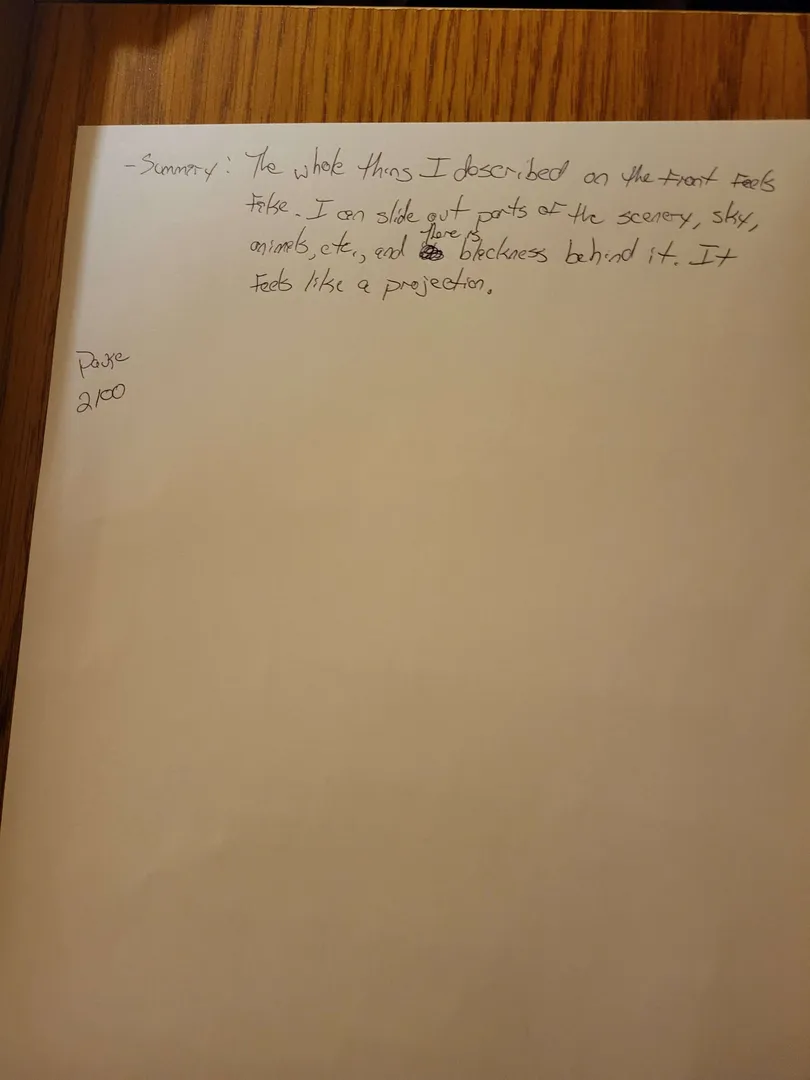 - Summary: The whole thing I described on the front feels
fake. I can slide out parts of the scenery, sky,
there is
animals, etc., and blackness behind it. It
feels like a projection.
Pause
2100